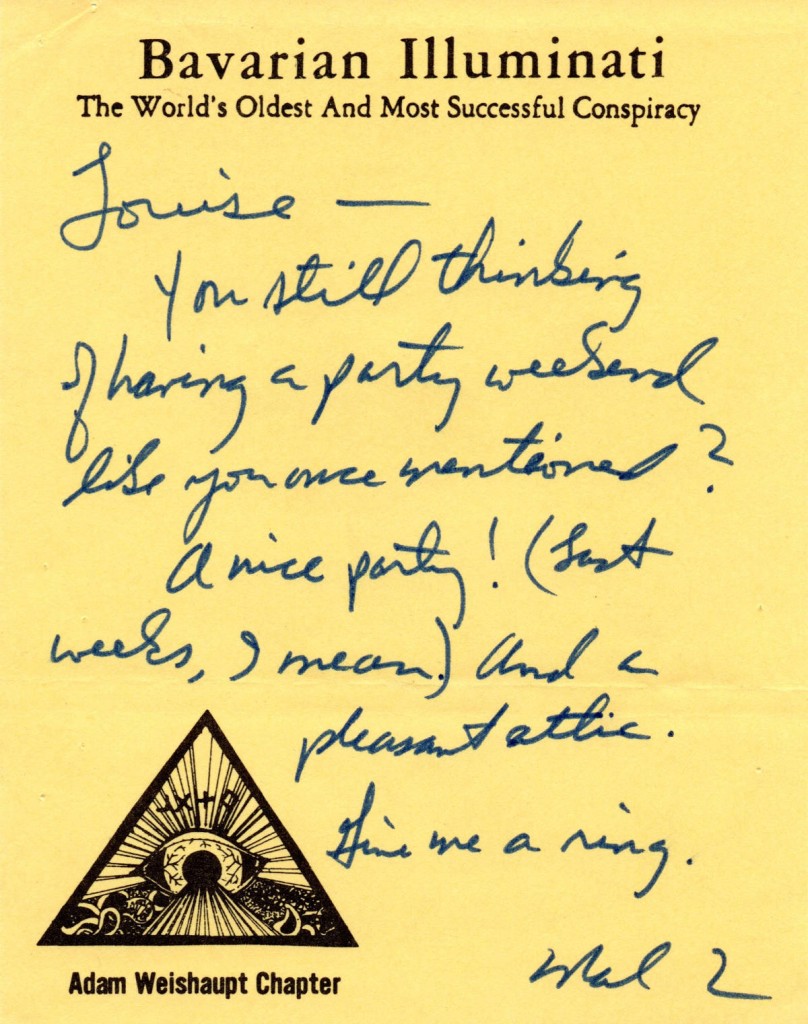 Bavarian Illuminati
The World's Oldest And Most Successful Conspiracy
Louise —
You still thinking
of having a party weekend
like you once mentioned?
A nice party! (Last
weeks, I mean.) And a
pleasant attic.
Give me a ring.
Mal 2
Adam Weishaupt Chapter